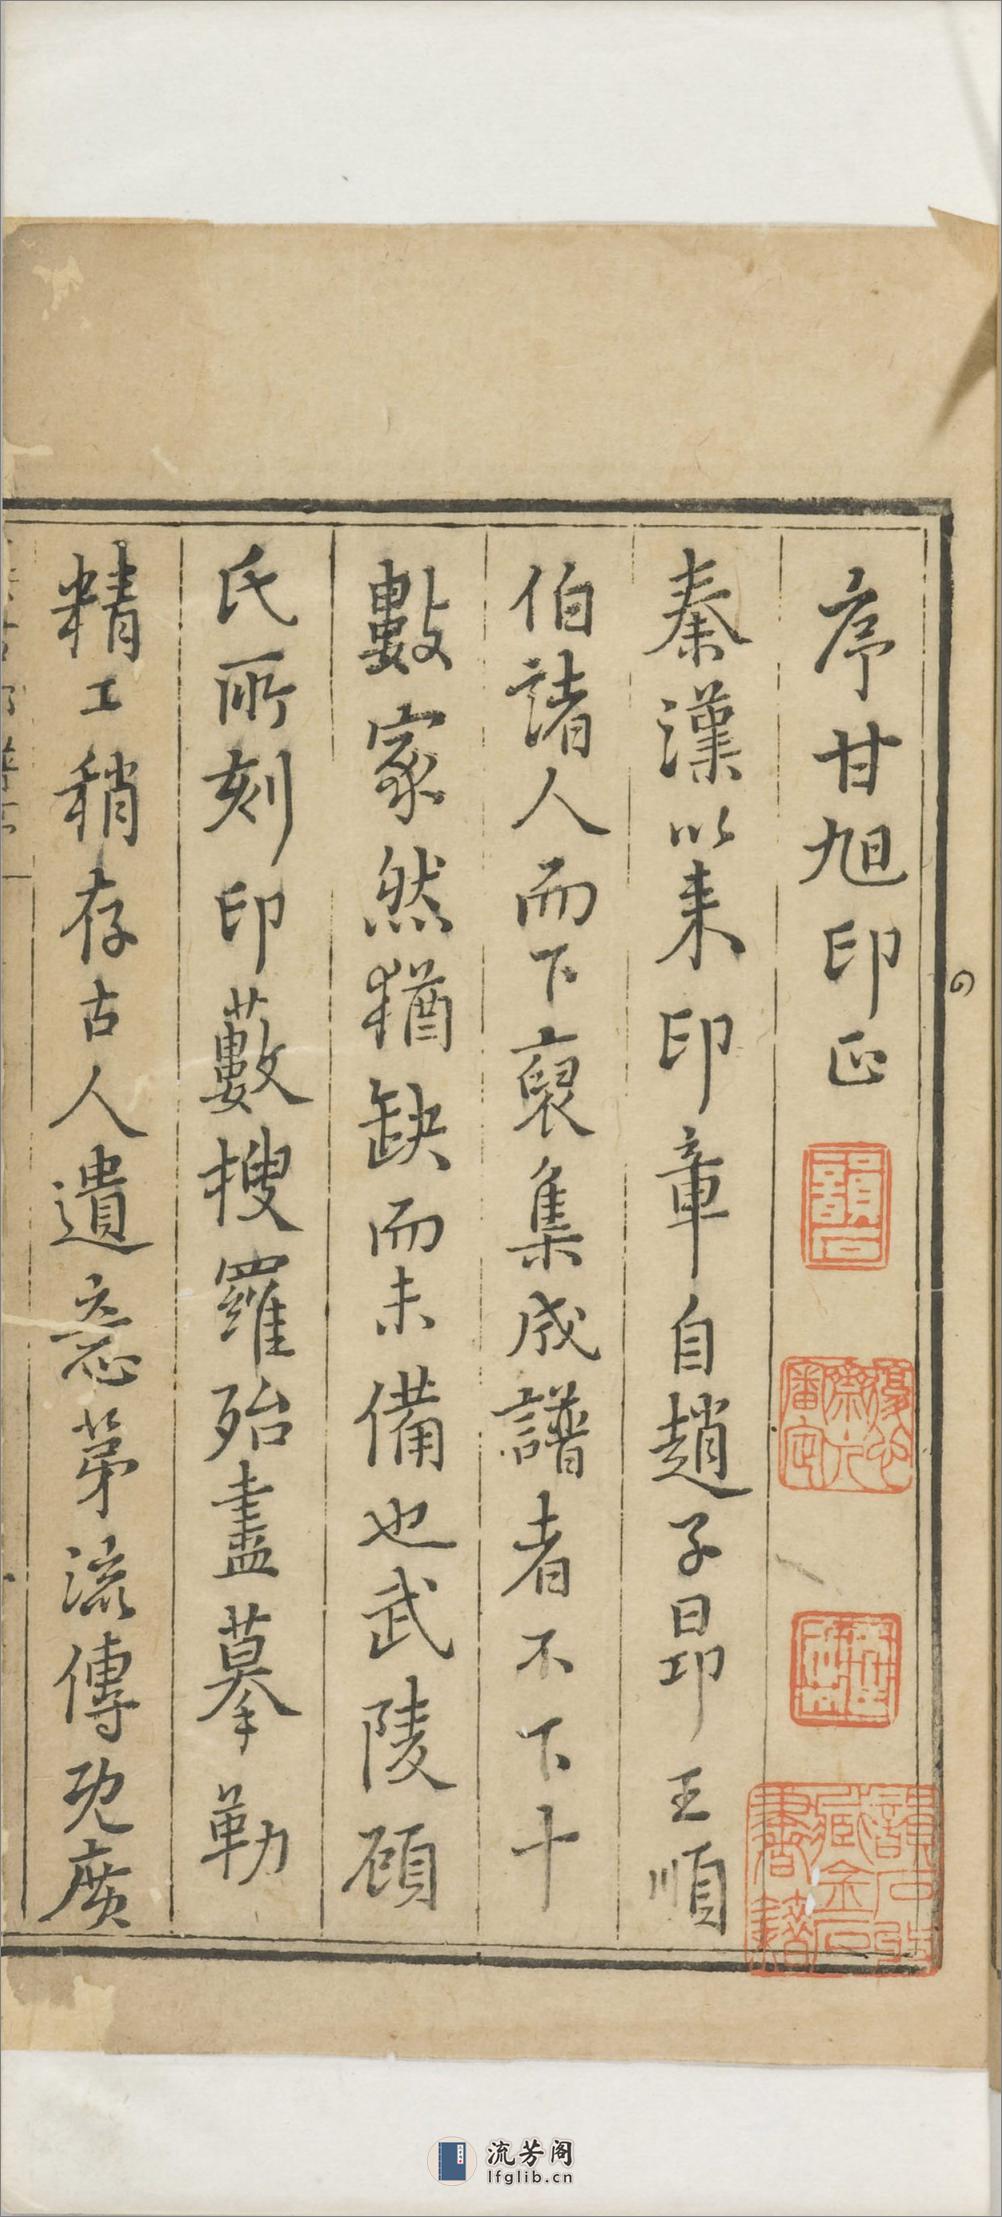 序甘旭印正
秦漢以来印章自趙子昂王順
伯諸人而下裒集成譜者不下十
數家然猶缺而未備也武陵顧
氏所刻印藪搜羅殆盡摹勒
精工稍存古人遺意第流傳既廣
流芳阁
lfglib.cn